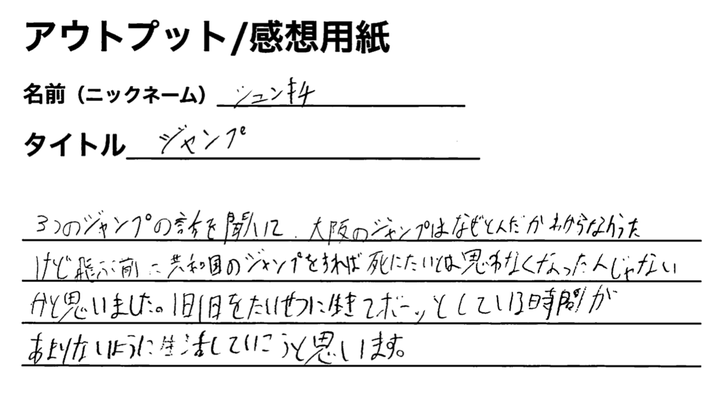 アウトプット/感想用紙
名前（ニックネーム） シュンキチ
タイトル ジャンプ
3つのジャンプの話を聞いて、大阪のジャンプはなぜとんだかわからなかった
けど飛ぶ前に共和国のジャンプをすれば死にたいとは思わなくなった人じゃない
かと思いました。1日1日をたいせつに生きてボーッとしている時間が
あまりないように生活していこうと思います。